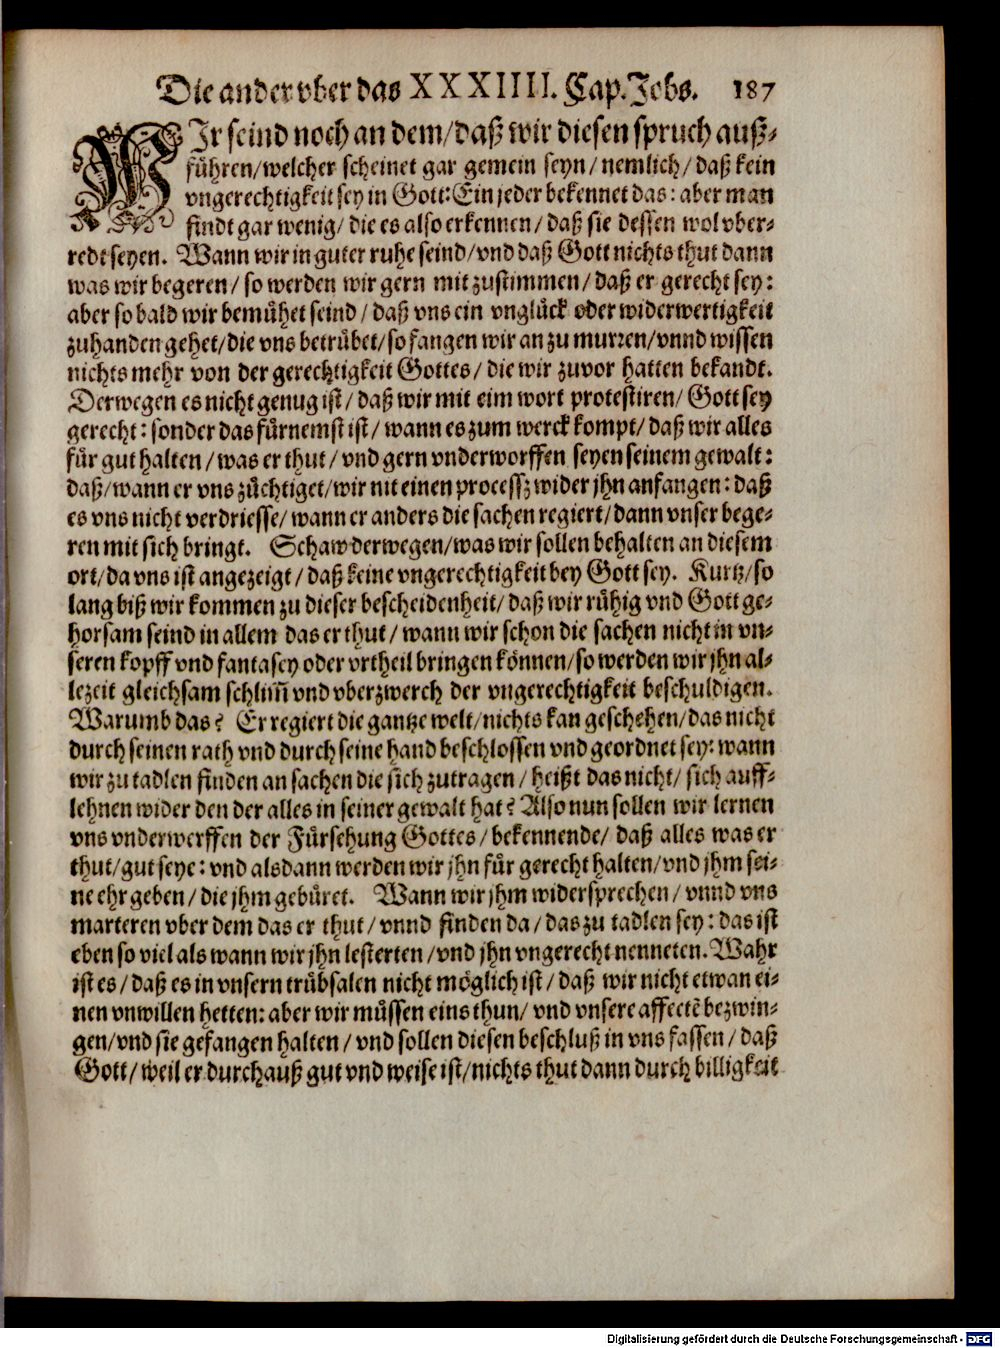 Die ander vber das XXXIIII. Cap. Jobs. 187
WJr seind noch an dem/ daß wir diesen spruch auß-
führen/ welcher scheinet gar gemein seyn/ nemlich/ daß kein
vngerechtigkeit sey in Gott: Ein jeder bekennet das: aber man
findt gar wenig/ die es also erkennen/ daß sie dessen wol vber-
redt seyen. Wann wir in guter ruhe seind/ vnd daß Gott nichts thut dann
was wir begeren/ so werden wir gern mit zustimmen/ daß er gerecht sey:
aber so bald wir bemühet seind/ daß vns ein vnglück oder widerwertigkeit
zuhanden gehet/ die vns betrübet/ so fangen wir an zu murren/ vnnd wissen
nichts mehr von der gerechtigkeit Gottes/ die wir zuvor hatten bekandt.
Derwegen es nicht genug ist/ daß wir mit eim wort protestiren/ Gott sey
gerecht: sonder das fürnemst ist/ wann es zum werck kompt/ daß wir alles
für gut halten/ was er thut/ vnd gern vnderworffen seyen seinem gewalt:
daß/ wann er vns züchtiget/ wir nit einen processz wider jhn anfangen: daß
es vns nicht verdriesse/ wann er anders die sachen regiert/ dann vnser bege-
ren mit sich bringt. Schaw derwegen/ was wir sollen behalten an diesem
ort/ da vns ist angezeigt/ daß keine vngerechtigkeit bey Gott sey. Kurtz/ so
lang biß wir kommen zu dieser bescheidenheit/ daß wir rühig vnd Gott ge-
horsam seind in allem das er thut/ wann wir schon die sachen nicht in vn-
seren kopff vnd fantasey oder vrtheil bringen können/ so werden wir jhn al-
lezeit gleichsam schlim̃ vnd vberzwerch der vngerechtigkeit beschuldigen.
Warumb das? Er regiert die gantze welt/ nichts kan geschehen/ das nicht
durch seinen rath vnd durch seine hand beschlossen vnd geordnet sey: wann
wir zu tadlen finden an sachen die sich zutragen/ heißt das nicht/ sich auff-
lehnen wider den der alles in seiner gewalt hat? Also nun sollen wir lernen
vns vnderwerffen der Fürsehung Gottes/ bekennende/ daß alles was er
thut/ gut seye: vnd alsdann werden wir jhn für gerecht halten/ vnd jhm sei-
ne ehr geben/ die jhm gebüret. Wann wir jhm widersprechen/ vnnd vns
marteren vber dem das er thut/ vnnd finden da/ das zu tadlen sey: das ist
eben so viel als wann wir jhn lesterten/ vnd jhn vngerecht nenneten. Wahr
ist es/ daß es in vnsern trübsalen nicht möglich ist/ daß wir nicht etwan ei-
nen vnwillen hetten: aber wir müssen eins thun/ vnd vnsere affectẽ bezwin-
gen/ vnd sie gefangen halten/ vnd sollen diesen beschluß in vns fassen/ daß
Gott/ weil er durchauß gut vnd weise ist/ nichts thut dann durch billigkeit
Digitalisierung gefördert durch die Deutsche Forschungsgemeinschaft - DFG